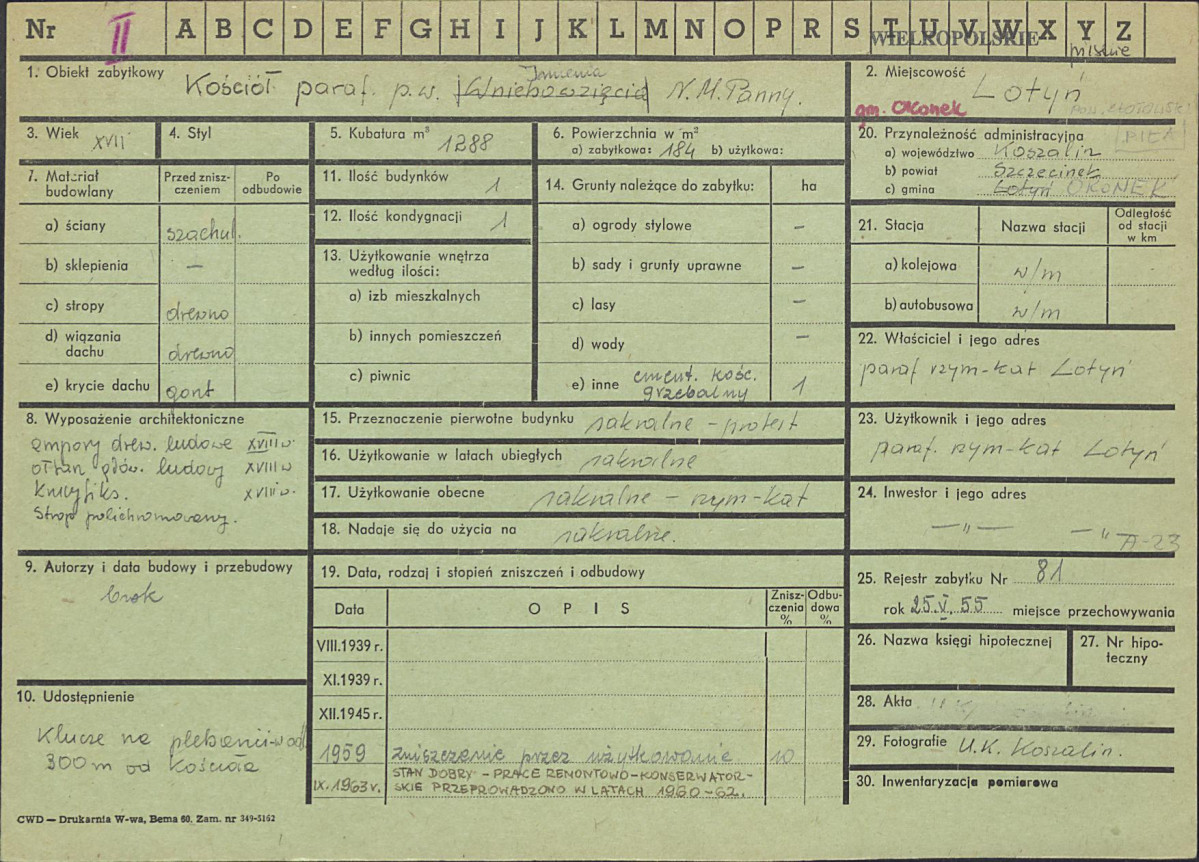 Nr II A B C D E F G H I J K L M N O P R S T U V W X Y Z
WIELKOPOLSKIE
1. Obiekt zabytkowy Kościół paraf. p.w. Wniebowzięcia Imienia N.M.Panny.
2. Miejscowość Lotyń
gm. Okonek
3. Wiek XVII
4. Styl
5. Kubatura m³ 1288
6. Powierzchnia w m²
a) zabytkowa: 184 b) użytkowa:
7. Materiał budowlany
Przed znisz-
czeniem
Po
odbudowie
a) ściany szachul.
b) sklepienia —
c) stropy drewno
d) wiązania
dachu drewno
e) krycie dachu gont
8. Wyposażenie architektoniczne
empory drew. ludowe XVIII w.
ołtarz głów. ludowy XVIII w
krucyfiks. XVIII w.
Strop polichromowany.
9. Autorzy i data budowy i przebudowy
brak
10. Udostępnienie
Klucze na plebanii w odl.
300 m od kościoła
11. Ilość budynków 1
12. Ilość kondygnacji 1
13. Użytkowanie wnętrza
według ilości:
a) izb mieszkalnych
b) innych pomieszczeń
c) piwnic
14. Grunty należące do zabytku: ha
a) ogrody stylowe —
b) sady i grunty uprawne —
c) lasy —
d) wody —
e) inne cment. kośc.
grzebalny 1
15. Przeznaczenie pierwotne budynku sakralne – protest
16. Użytkowanie w latach ubiegłych sakralne
17. Użytkowanie obecne sakralne – rzym-kat
18. Nadaje się do użycia na sakralne.
19. Data, rodzaj i stopień zniszczeń i odbudowy
Data OPIS Znisz-
czenia
%
Odbu-
dowa
%
VIII.1939 r.
XI.1939 r.
XII.1945 r.
1959 zniszczenie przez użytkowanie 10
IX.1963 r. STAN DOBRY – PRACE REMONTOWO–KONSERWATOR-
SKIE PRZEPROWADZONO W LATACH 1960–62.
20. Przynależność administracyjna PIŁA
a) województwo Koszalin
b) powiat Szczecinek
c) gmina Lotyń OKONEK
21. Stacja Nazwa stacji Odległość
od stacji
w km
a) kolejowa w/m
b) autobusowa w/m
22. Właściciel i jego adres
paraf rzym-kat Lotyń
23. Użytkownik i jego adres
paraf. rzym-kat Lotyń
24. Inwestor i jego adres
—"— —"
A-23
25. Rejestr zabytku Nr 81
rok 25.V.55 miejsce przechowywania
26. Nazwa księgi hipotecznej
27. Nr hipo-
teczny
28. Akta
29. Fotografie U.K. Koszalin.
30. Inwentaryzacja pomiarowa
CWD — Drukarnia W-wa, Bema 60. Zam. nr 349-5162